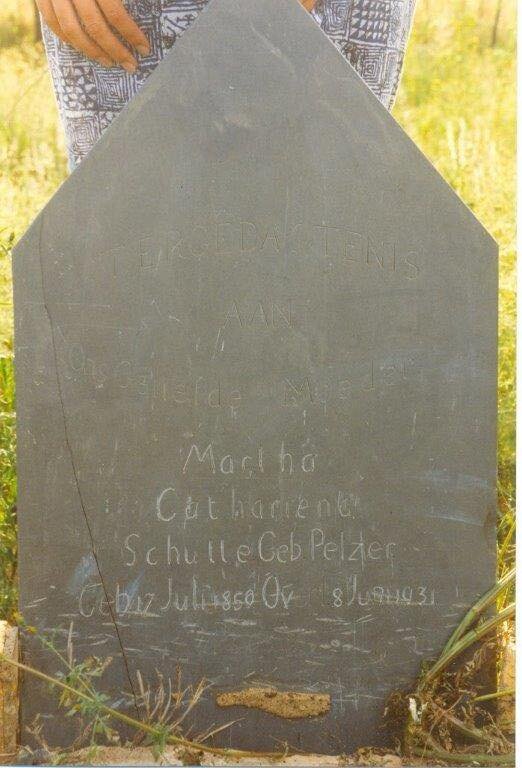 TERGEDAGTENIS
AAN
Ons Geliefde Moeder
Martha
Cathariena
Schutte Geb Pelzer
Geb 17 Juli 1850 Ov 8 Juni 1931